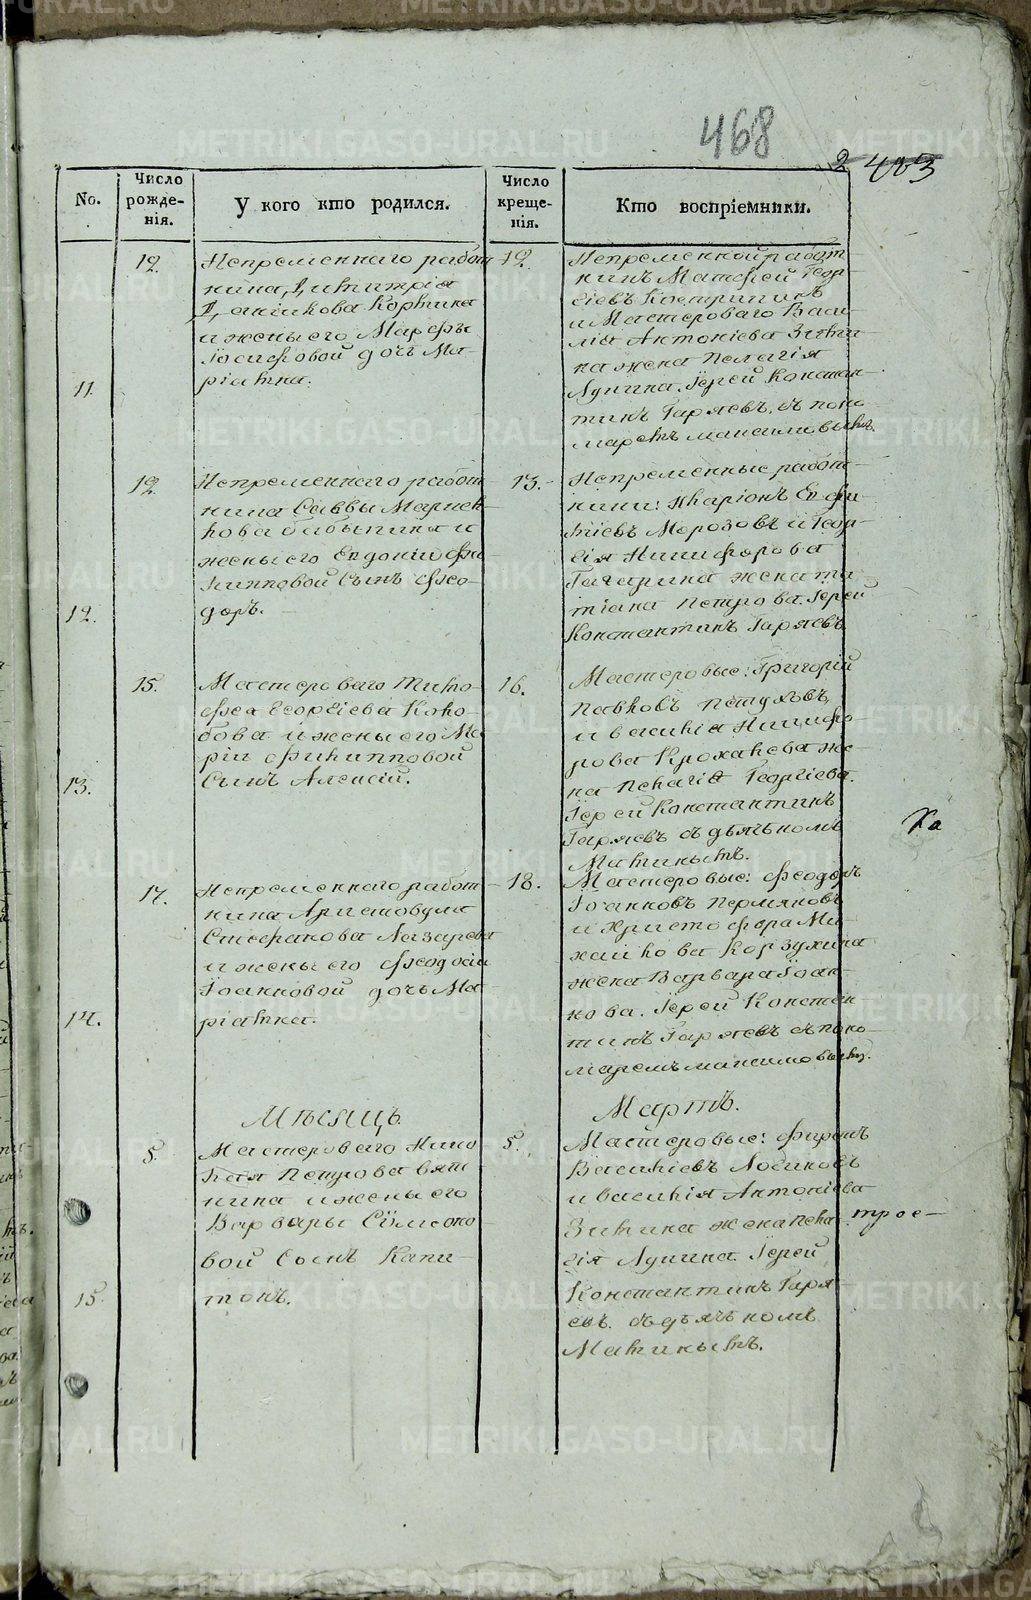 468
2 483
No.
Число рожде-нія.
У кого кто родился.
Число креще-нія.
Кто воспріемники.
11.
12.
Непременнаго работ-
ника Димитрія
Кортина
и жены его Марфы
Іосифовой дочь Ма-
ріамна.
12.
Непременной работ-
никъ Матѳей Геор-
гіевъ Кострининъ
и Мастероваго Васи-
лія Антоніева Зими-
на жена Пелагія
Лукина. Іерей Констан-
тинъ Гаряевъ, съ поно-
маремъ максимовымъ.
12.
12.
Непременнаго работ-
ника Саввы
и
жены его Евдокіи Фи-
липповой Сынъ Ѳео-
доръ.
13.
Непременные работ-
ники: Иларіонъ Евфи-
міевъ Морозовъ и Геор-
гія Никифорова
Гагарина жена та-
тіана Петрова. Іерей
Константинъ Гаряевъ.
13.
15.
Мастероваго Тимо-
фea Георгіева Коко-
ва и жены его Ма-
ріи Филипповой
Сынъ Алексій.
16.
Мастеровые: Григорій
Павловъ Петуховъ,
и василія Никифо-
рова Крохалева же-
на Пелагія Георгіева.
Іерей Константинъ
Гаряевъ съ дьячкомъ
Матинымъ.
Ха
14.
17.
Непременнаго работ-
ника Аристовула
Стефанова Лазарева
и жены его Ѳеодосіи
Іоанновой дочь Ма-
ріамна.
18.
Мастеровые: Ѳеодоръ
Іоанновъ Пермяковъ
и Христофора Ми-
хайлова Корзухина
жена Варвара Іоан-
нова. Іерей Констан-
тинъ Гаряевъ съ поно-
маремъ максимовымъ.
Мѣсяцъ
Мартъ.
15
5.
Мастероваго Нико-
лая Петрова вят-
кина и жены его
Варвары Симеоно-
вой Сынъ Капи-
тонъ.
5.
Мастеровые: Фирсъ
Васильевъ Лобановъ
и василія Антоніева
Зимина жена Пела-
гія Лукина. Іерей
Константинъ Гаря-
евъ. съ дьячкомъ
Матинымъ.
трое-
METRIKI.GASO-URAL.RU